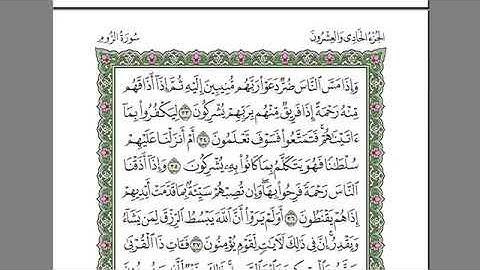 الجزء الحادي والعشرون
سورة الروم
وَإِذَا مَسَّ ٱلنَّاسَ ضُرٌّ دَعَوْا۟ رَبَّهُم مُّنِيبِينَ إِلَيْهِ ثُمَّ إِذَآ أَذَاقَهُم
مِّنْهُ رَحْمَةً إِذَا فَرِيقٌ مِّنْهُم بِرَبِّهِمْ يُشْرِكُونَ ٣٣ لِيَكْفُرُوا۟ بِمَآ
ءَاتَيْنَٰهُمْ ۚ فَتَمَتَّعُوا۟ فَسَوْفَ تَعْلَمُونَ ٣٤ أَمْ أَنزَلْنَا عَلَيْهِمْ
سُلْطَٰنًا فَهُوَ يَتَكَلَّمُ بِمَا كَانُوا۟ بِهِۦ يُشْرِكُونَ ٣٥ وَإِذَآ أَذَقْنَا
ٱلنَّاسَ رَحْمَةً فَرِحُوا۟ بِهَا ۖ وَإِن تُصِبْهُمْ سَيِّئَةٌۢ بِمَا قَدَّمَتْ أَيْدِيهِمْ
إِذَا هُمْ يَقْنَطُونَ ٣٦ أَوَلَمْ يَرَوْا۟ أَنَّ ٱللَّهَ يَبْسُطُ ٱلرِّزْقَ لِمَن يَشَآءُ
وَيَقْدِرُ ۚ إِنَّ فِى ذَٰلِكَ لَءَايَٰتٍ لِّقَوْمٍ يُؤْمِنُونَ ٣٧ فَـَٔاتِ ذَا ٱلْقُرْبَىٰ